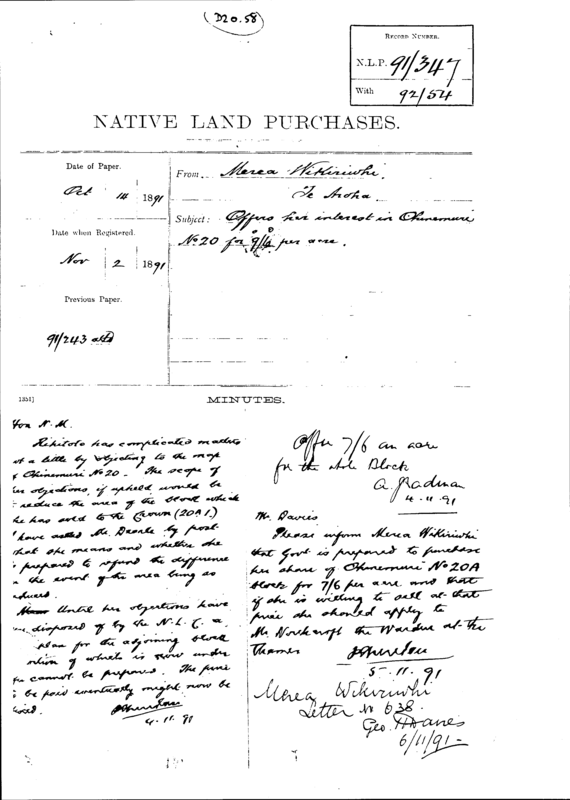 (D20.58)
RECORD NUMBER.
N.L.P. 91/347
With 92/54
NATIVE LAND PURCHASES.
Date of Paper.
Oct 14 1891
Date when Registered.
Nov 2 1891
Previous Paper.
91/243 attd
From Merea Wikiriwhi
Te Aroha
Subject: Offers her interest in Ohinemuri
No 20 for 9/6 per acre.
1351]
MINUTES.
Hon N.M.
has complicated matters
a little by objecting to the map
Ohinemuri No 20. The scope of
objections, if upheld would be
reduce the area of the block which
he has sold to the Crown (20A1.)
have asked Mr. by post
what she means and whether she
prepared to refund the difference
in the event of the area being so
reduced.
Until her objections have
disposed of by the N.L.C. a
plan for the adjoining block
portion of which is now under
cannot be prepared. The price
be paid eventually might now be
fixed.
4.11.91
Offer 7/6 an acre
for the whole Block
A. Cadman
4.11.91
Mr. Davies
Please inform Merea Wikiriwhi
that Govt is prepared to purchase
her share of Ohinemuri No 20A
block for 7/6 per acre and that
if she is willing to sell at that
price she should apply to
Mr Northcroft the Warden at the
Thames
5.11.91
Merea Wikiriwhi
Letter No 638.
Geo. H Davies
6/11/91